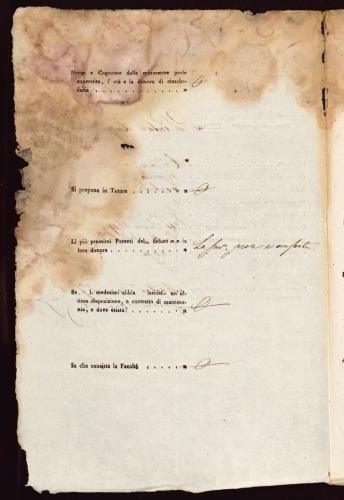 Nome e Cognome della minorenne prole
superstite, l' età e la dimora di ciasche-
duna
Si propone in Tutore
Li più prossimi Parenti del defunto e la
loro dimora prole e consorte
Se l medesimo abbia lasciato un' ul-
tima disposizione, o contratto di matrimo-
nio, e dove esista?
In che consista la Facoltà